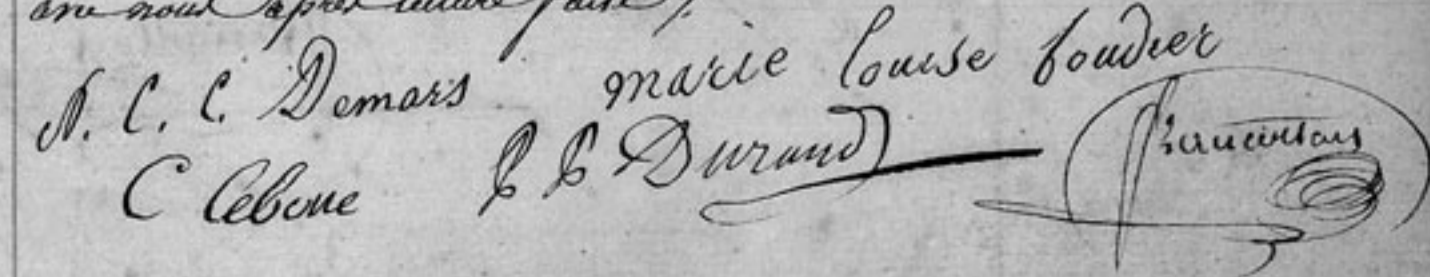 avec nous après lecture faite /.
N. C. C. Demars marie Louise foudrier
C Leboue P P Durand